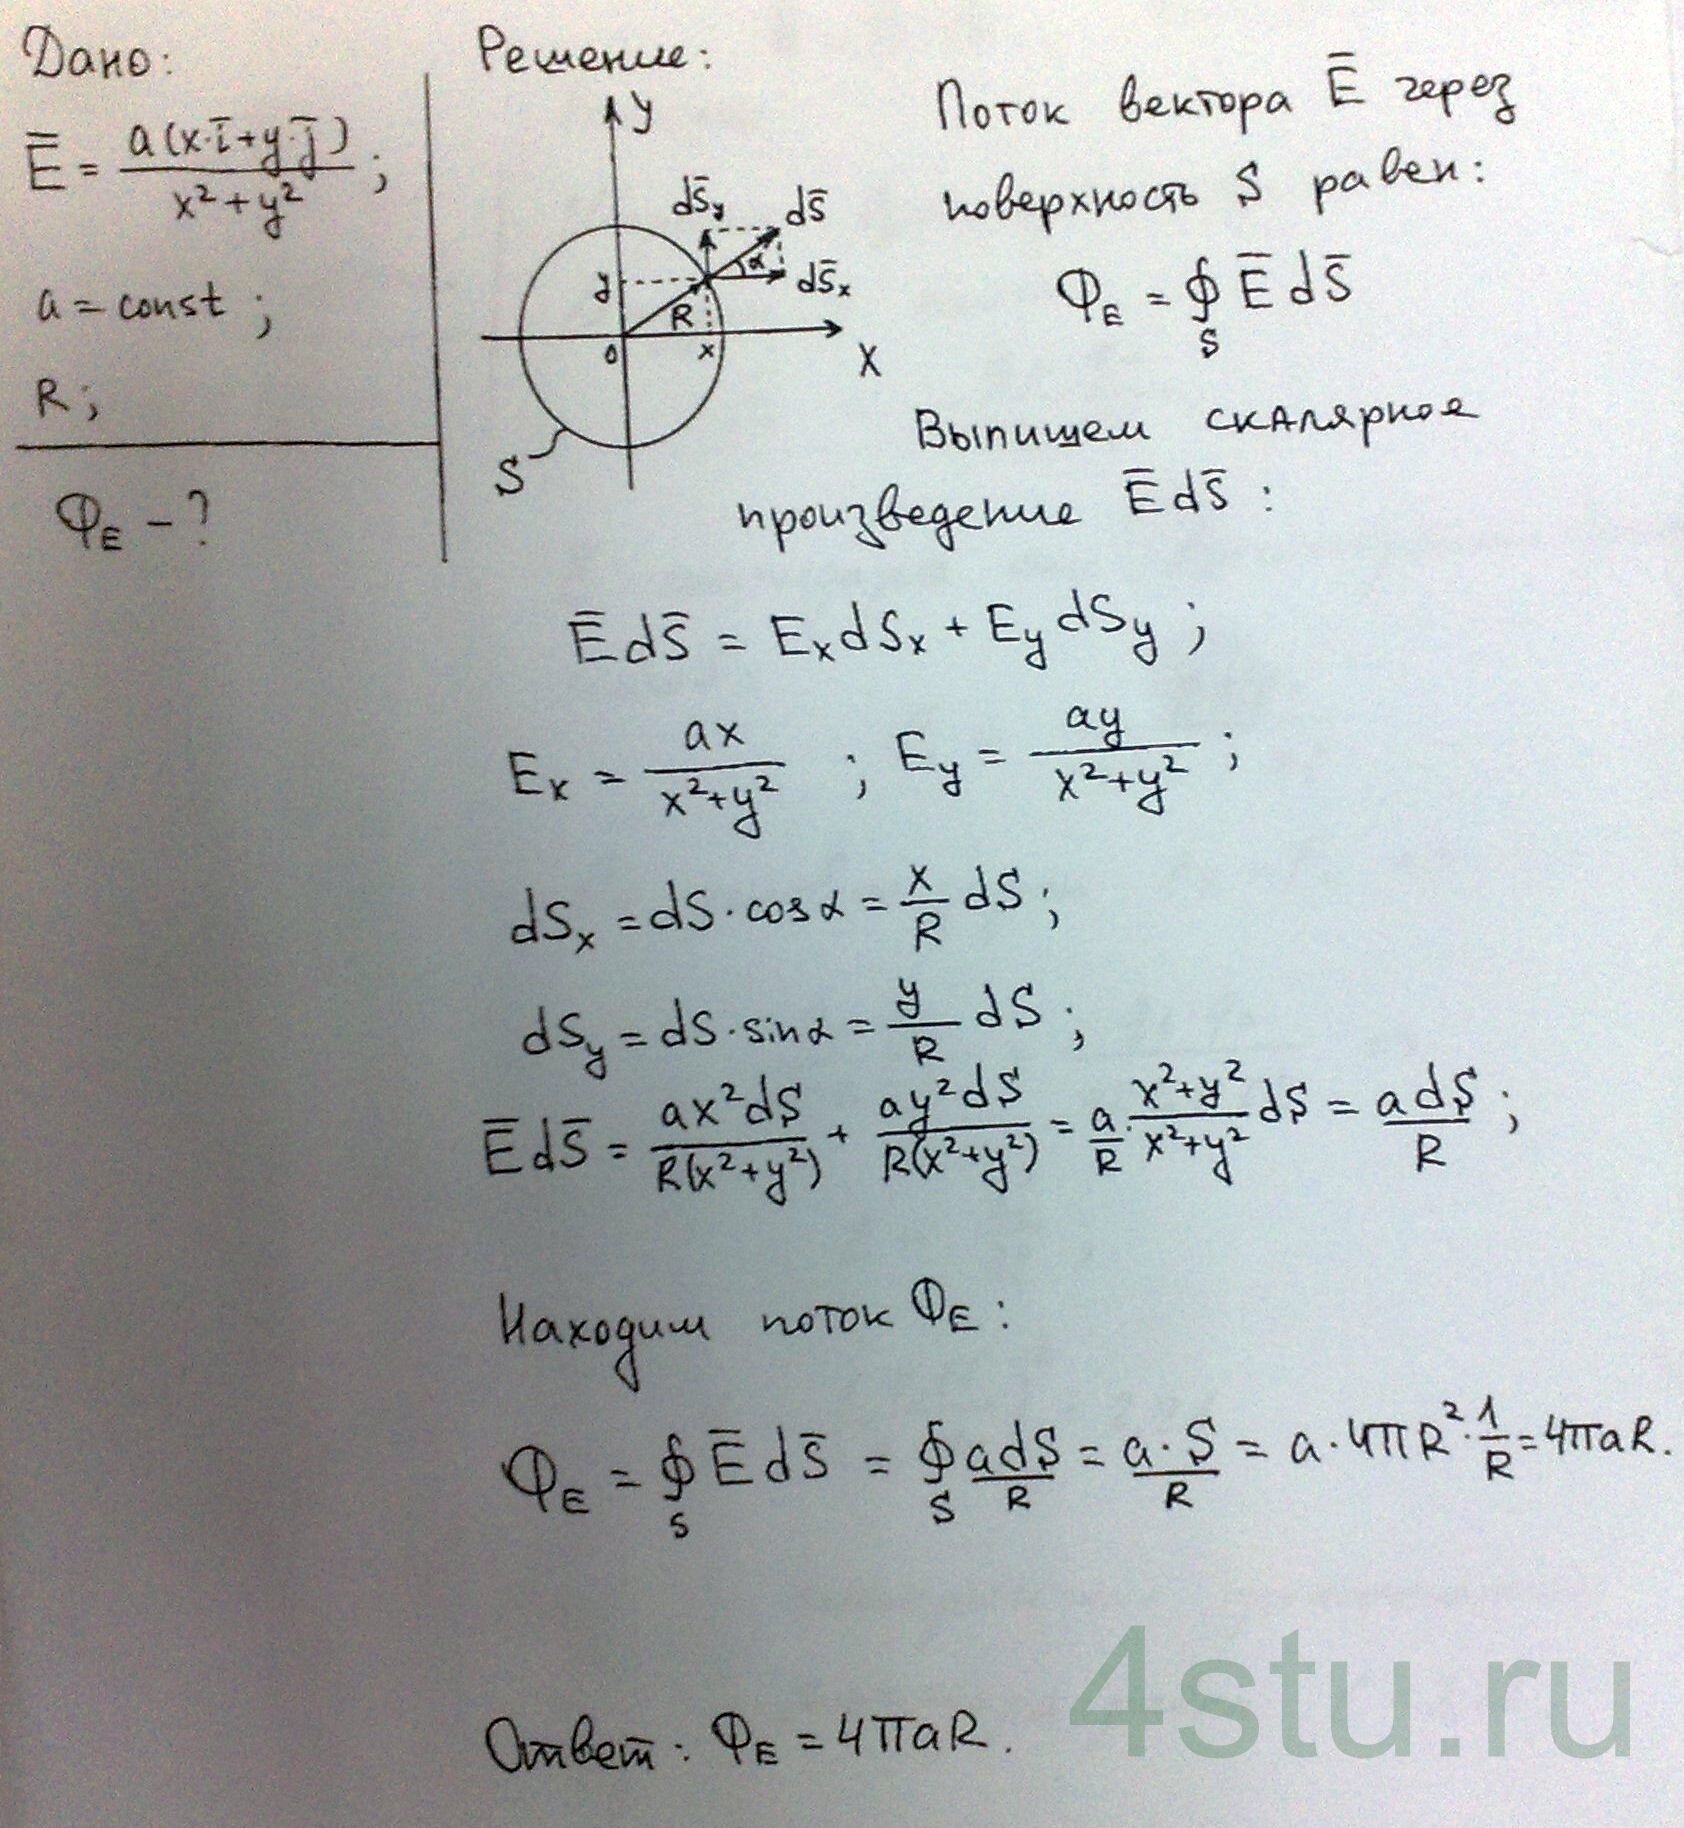 Дано:
E̅ = a(x·i̅+y·j̅) / x²+y² ;
a = const ;
R ;
Φ_E – ?
Решение:
y
dS̅_y
dS̅
α
dS̅_x
y
R
0
x
X
S
Поток вектора E̅ через
поверхность S равен:
Φ_E = ∮_S E̅ dS̅
Выпишем скалярное
произведение E̅dS̅ :
E̅dS̅ = E_x dS_x + E_y dS_y ;
E_x = ax / x²+y² ; E_y = ay / x²+y² ;
dS_x = dS·cosα = x/R dS ;
dS_y = dS·sinα = y/R dS ;
E̅dS̅ = ax²dS / R(x²+y²) + ay²dS / R(x²+y²) = a/R · x²+y² / x²+y² dS = adS / R ;
Находим поток Φ_E :
Φ_E = ∮_S E̅dS̅ = ∮_S adS / R = a·S / R = a·4πR²·1/R = 4πaR.
Ответ: Φ_E = 4πaR.
4stu.ru